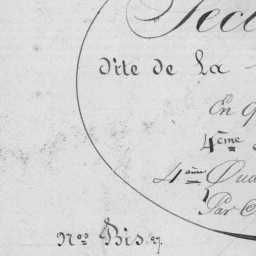 Sec
dite de La
En
4ème
4ème Qua
Par
Nos Bis